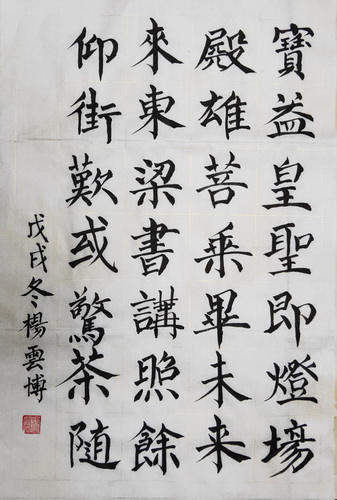 寶益皇聖即燈場
殿雄菩乘畢未来
來東梁書講照餘
仰街歎或驚茶隨
戊戌冬楊雲博